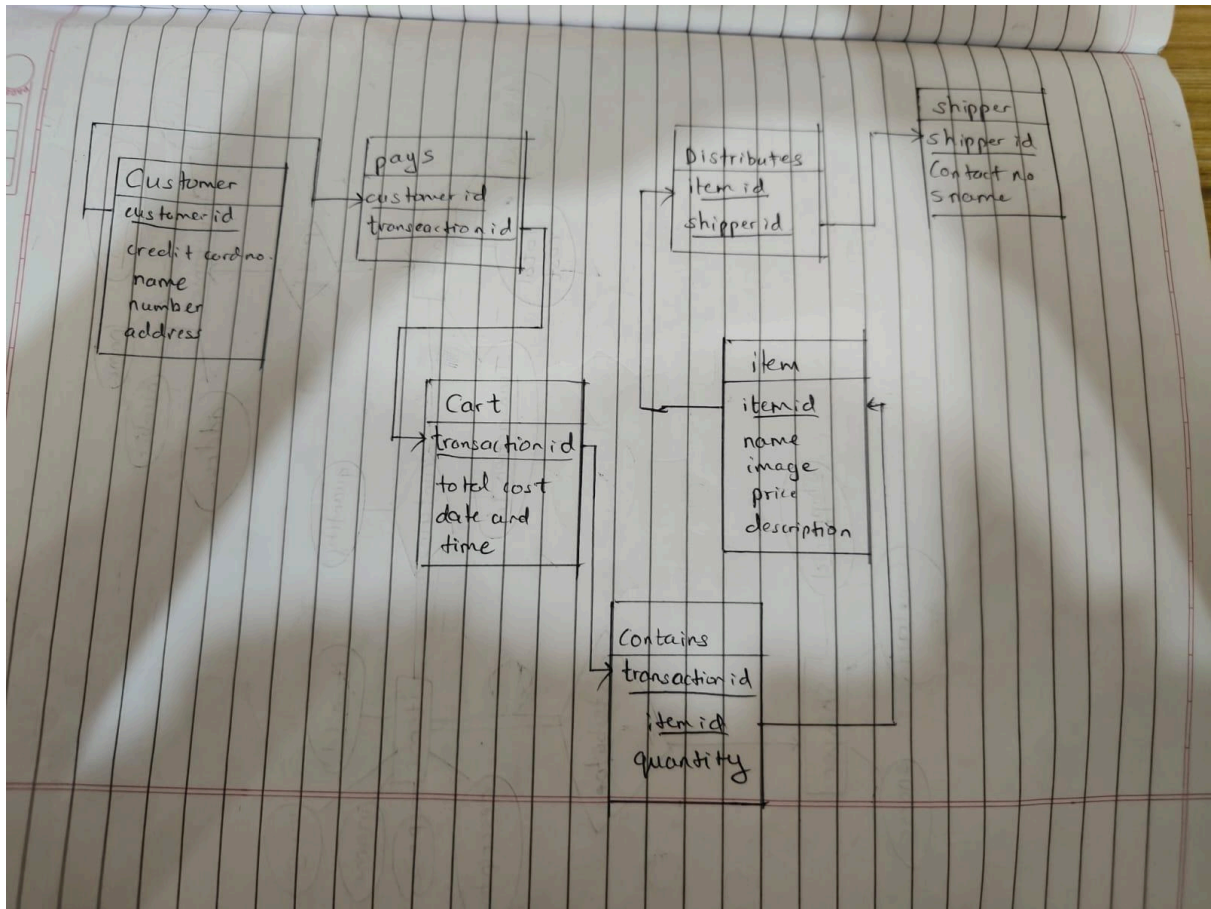 Customer
customer id
credit cord no.
name
number
address
pays
customer id
transeaction id
Distributes
item id
shipper id
shipper
shipper id
Contact no
sname
Cart
transaction id
total cost
date and
time
item
item id
name
image
price
description
Contains
transaction id
item id
quantity